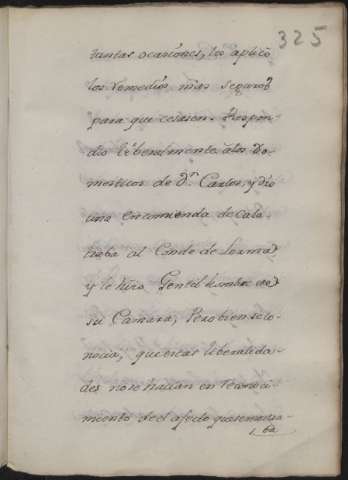 325
tantas ocasiones, les aplicò
los remedios mas seguros
para que cesasen. Respon-
dio liberalmente a los Do-
mesticos de Dn. Carlos, y dio
una encomienda de Cala-
traba al Conde de Lerma
y le hizo Gentil hombre de
su Camara; Pero bien se co-
nocia, que estas liberalida-
des no se hacian en reconoci-
miento del afecto que mostra-
ba